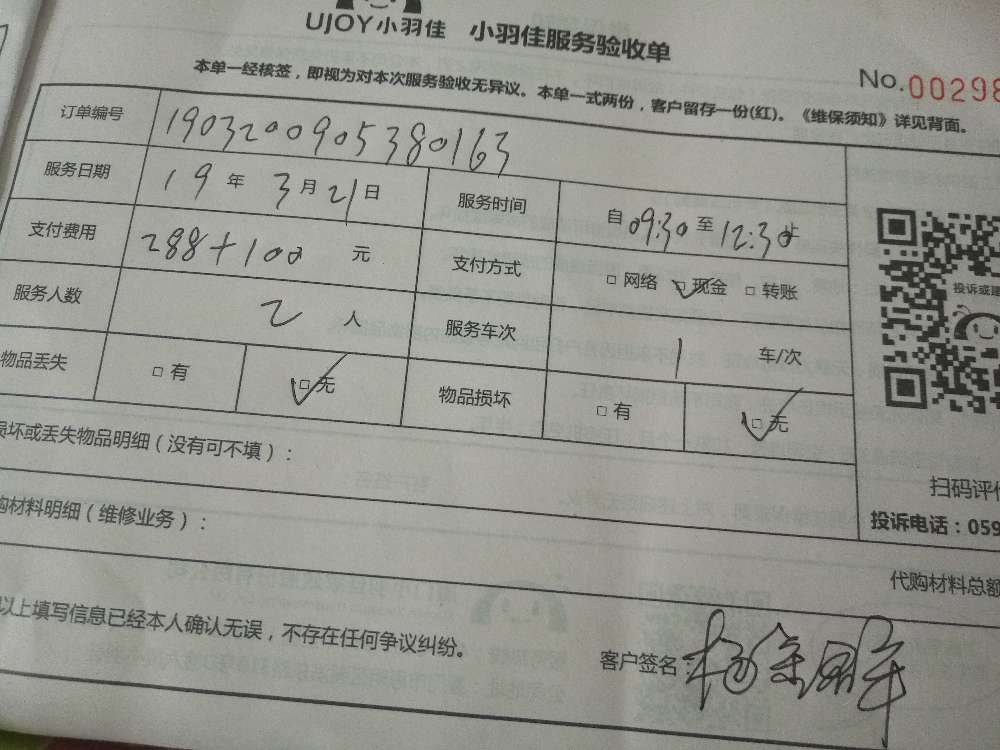 UJOY小羽佳 小羽佳服务验收单
No.00298
本单一经核签，即视为对本次服务验收无异议。本单一式两份，客户留存一份(红)。《维保须知》详见背面。
订单编号 1903200905380163
服务日期 19年3月21日 服务时间 自09:30至12:30止
支付费用 288+100 元 支付方式 □网络 ☑现金 □转账
服务人数 2 人 服务车次 1 车/次
物品丢失 □有 ☑无 物品损坏 □有 ☑无
投诉或建
损坏或丢失物品明细（没有可不填）：
扫码评价
购材料明细（维修业务）：
投诉电话：059
代购材料总额
以上填写信息已经本人确认无误，不存在任何争议纠纷。
客户签名：